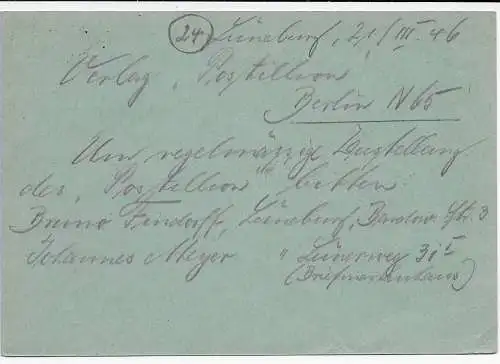 (24) Lüneburg, 21/III.46
Verlag "Postillion"
Berlin N 65
Um regelmäszige Zustellung
des "Postillion" bitten
Bruno Fendorff, Lüneburg, Str. 3
Johannes Meyer " Lünerweg 31 I
(Briefmarkenhaus)